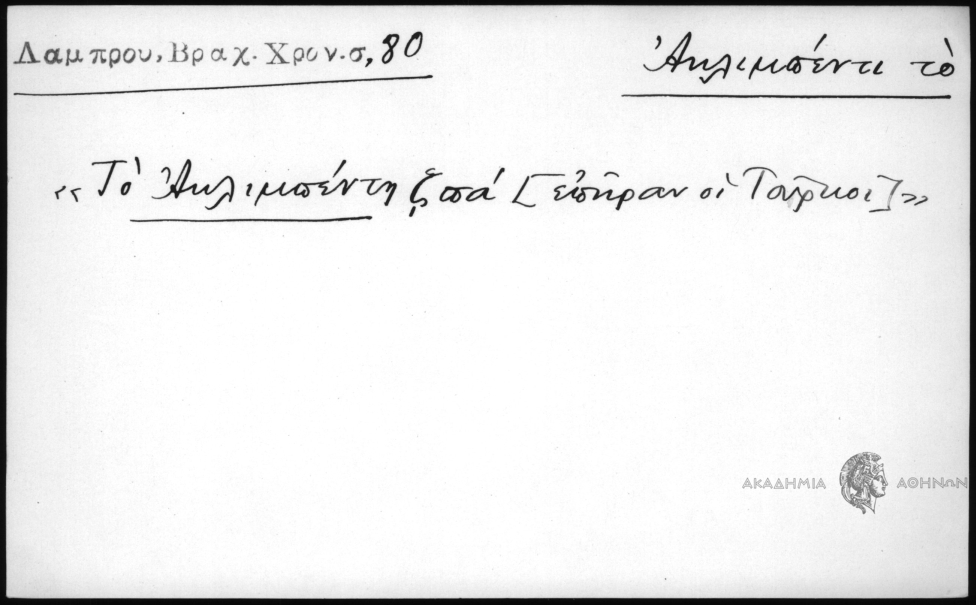 Λαμπρου, Βραχ. Χρον. σ, 80
Ἀκλιμπέντι τὸ
« Τὸ Ἀκλιμπέντη ϛπά [ἐπῆραν οἱ Τοῦρκοι] »
ΑΚΑΔΗΜΙΑ ΑΘΗΝΩΝ